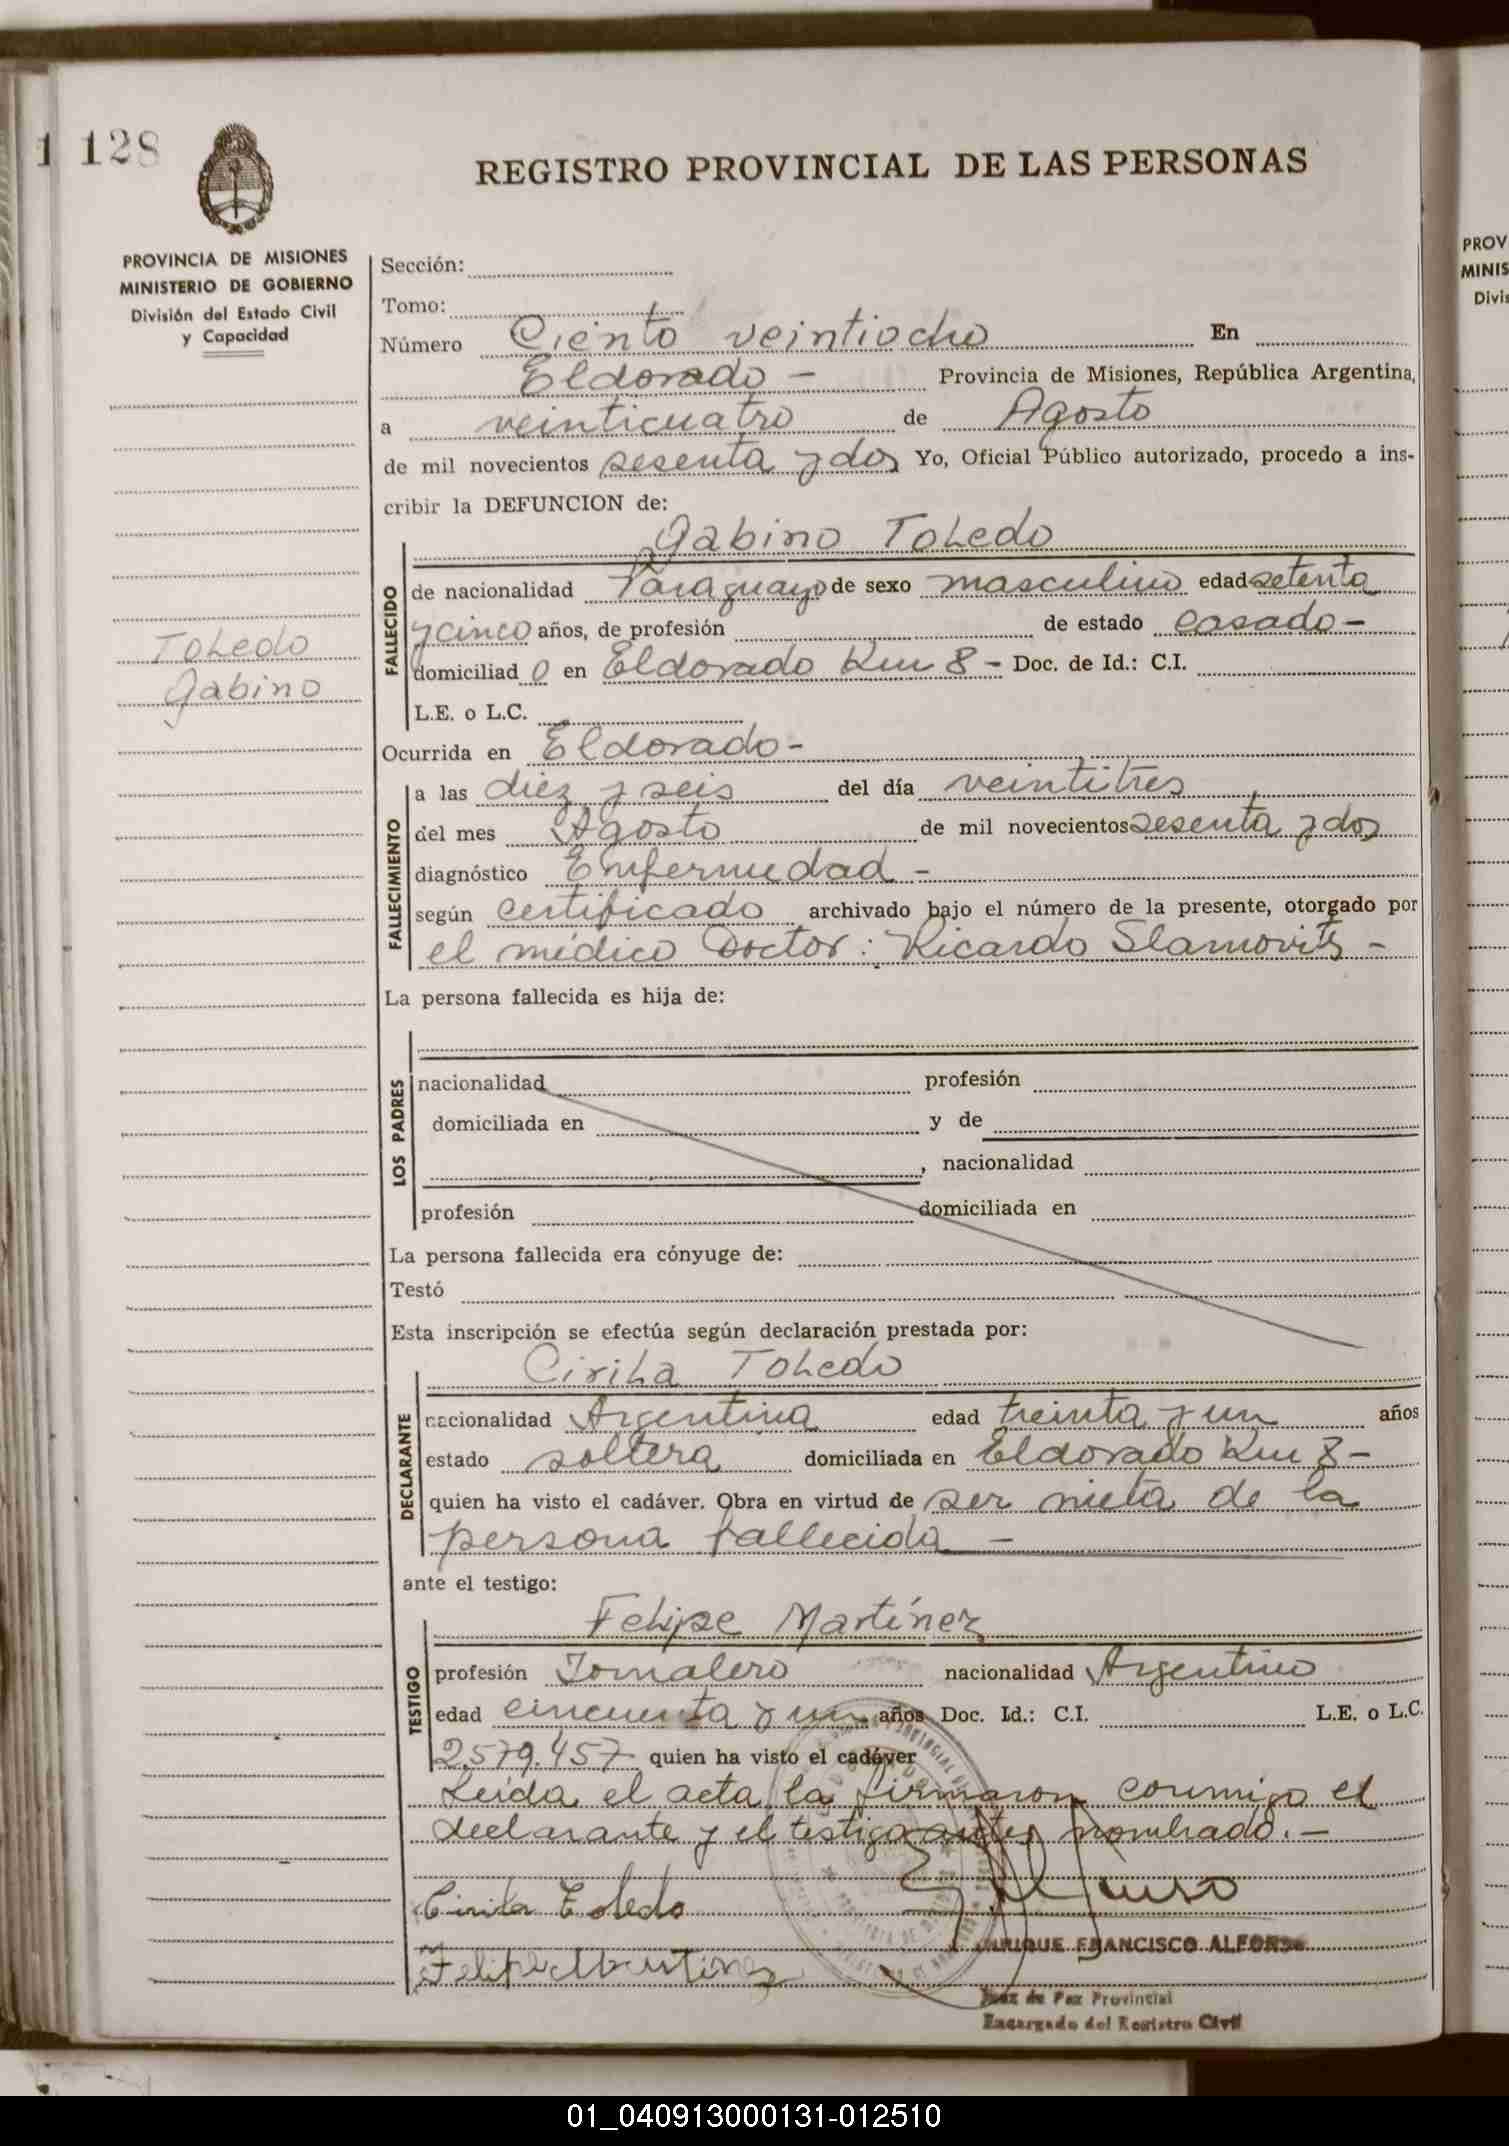 1 128
REGISTRO PROVINCIAL DE LAS PERSONAS
PROVINCIA DE MISIONES
MINISTERIO DE GOBIERNO
División del Estado Civil
y Capacidad
Toledo
Gabino
Sección:
Tomo:
Número Ciento veintiocho En
Eldorado - Provincia de Misiones, República Argentina,
a veinticuatro de Agosto
de mil novecientos sesenta y dos Yo, Oficial Público autorizado, procedo a ins-
cribir la DEFUNCION de:
Gabino Toledo
FALLECIDO
de nacionalidad Paraguayo de sexo masculino edad setenta
y cinco años, de profesión de estado casado -
domiciliad o en Eldorado Km 8 - Doc. de Id.: C.I.
L.E. o L.C.
Ocurrida en Eldorado -
FALLECIMIENTO
a las diez y seis del día veintitres
del mes Agosto de mil novecientos sesenta y dos
diagnóstico Enfermedad -
según certificado archivado bajo el número de la presente, otorgado por
el médico Doctor: Ricardo Slamovits -
La persona fallecida es hija de:
LOS PADRES
nacionalidad profesión
domiciliada en y de
, nacionalidad
profesión domiciliada en
La persona fallecida era cónyuge de:
Testó
Esta inscripción se efectúa según declaración prestada por:
Cirila Toledo
DECLARANTE
nacionalidad Argentina edad treinta y un años
estado soltera domiciliada en Eldorado Km 8 -
quien ha visto el cadáver. Obra en virtud de ser nieta de la
persona fallecida -
ante el testigo:
Felipe Martínez
TESTIGO
profesión Jornalero nacionalidad Argentino
edad cincuenta y un años Doc. Id.: C.I. L.E. o L.C.
2.579.457 quien ha visto el cadáver
Leída el acta la firmaron conmigo el
declarante y el testigo antes nombrado. -
Cirila Toledo
Felipe Martinez
ENRIQUE FRANCISCO ALFONSO
Juez de Paz Provincial
Encargado del Registro Civil
PROV
MINIS
Divis
01_040913000131-012510